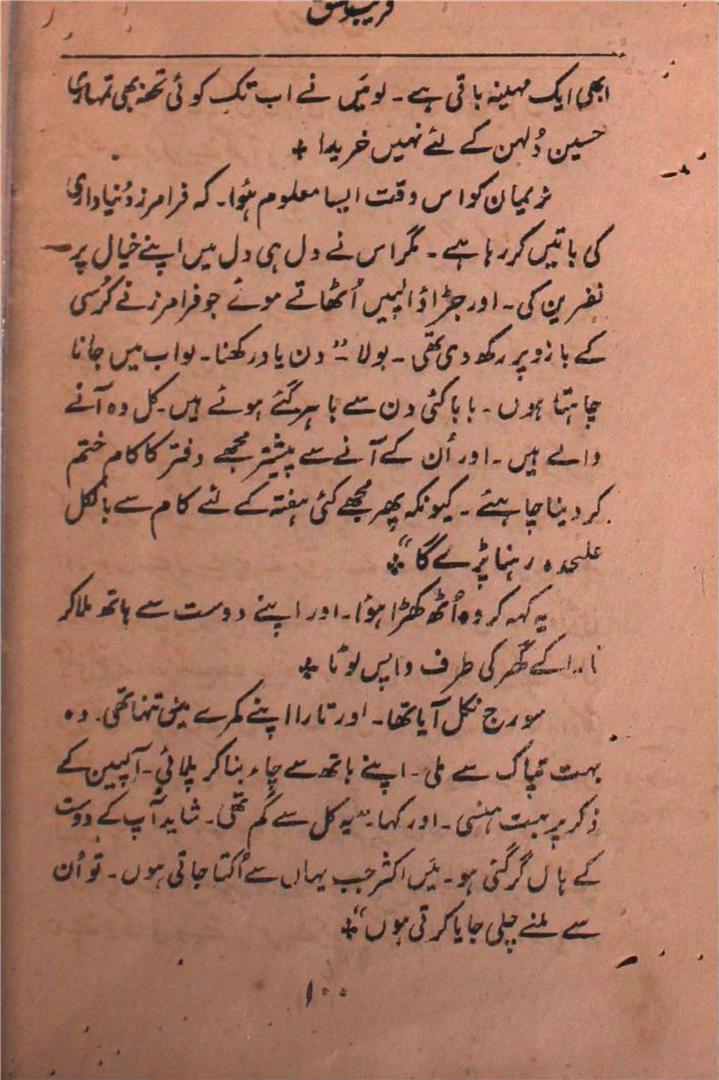 فریب عشق
ابھی ایک مہینہ باقی ہے۔ لو میَں نے اب تک کوئی تحفہ بھی تمہاری
حسین دُلہن کے لئے نہیں خریدا +
نریمان کو اس وقت ایسا معلوم ہؤا۔ کہ فرامرز دُنیا داری
کی باتیں کر رہا ہے۔ مگر اس نے دل ہی دل میں اپنے خیال پر
نفرین کی۔ اور جڑاؤ الپیں اُٹھاتے ہوئے جو فرامرز نے کُرسی
کے بازو پر رکھ دی تھی۔ بولا ۔ " دن یاد رکھنا۔ لو اب میں جانا
چاہتا ہوں۔ بابا کئی دن سے باہر گئے ہوئے ہیں۔ کل وہ آنے
والے ہیں۔ اور اُن کے آنے سے پیشتر مجھے دفتر کا کام ختم
کر دینا چاہئے۔ کیونکہ پھر مجھے کئی ہفتہ کے لئے کام سے بالکل
علیٰحدہ رہنا پڑے گا" +
یہ کہہ کر وہ اُٹھ کھڑا ہؤا۔ اور اپنے دوست سے ہاتھ ملا کر
تارا کے گھر کی طرف واپس لوٹا +
سورج نکل آیا تھا۔ اور تارا اپنے کمرے میں تنہا تھی۔ وہ
بہت تپاک سے ملی۔ اپنے ہاتھ سے چاء بنا کر پلائی۔ آلپین کے
ذکر پر بہت ہنسی۔ اور کہا۔ "یہ کل سے گم تھی۔ شاید آپ کے دوست
کے ہاں گر گئی ہو۔ میَں اکثر جب یہاں سے اُکتا جاتی ہوں۔ تو اُن
سے ملنے چلی جایا کرتی ہوں" +
۱۰۰